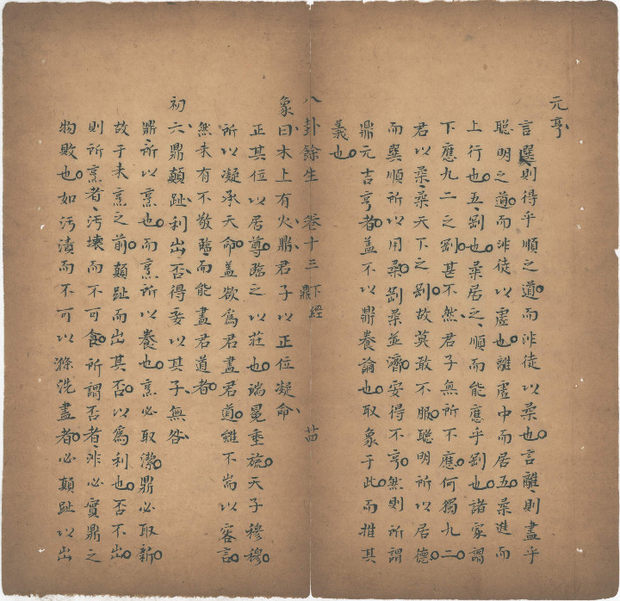 元亨
言巽則得乎順之道而非徒以柔也言離則盡乎
聰明之道而非徒以虛也離虛中而居五柔進而
上行也五剛也柔居之順而能應乎剛也諸家謂
下應九二之剛甚不然君子無所不應何獨九二
君以柔柔天下之剛故莫敢不服聰明所以居德
而巽順所以用柔剛柔並濟安得不亨然則所謂
鼎元吉亨者蓋不以鼎養論也取象于此而推其
義也
八卦餘生 卷十三 下經 鼎
象曰木上有火鼎君子以正位凝命
正其位以居尊臨之以莊也端冕垂旒天子穆穆
所以凝承天命蓋欲為君盡君道雖不尚以容言
然未有不敬臨而能盡君道者
初六鼎顛趾利出否得妾以其子無咎
鼎所以烹也而烹所以養也烹必取潔鼎必取新
故于未烹之前顛趾而出其否以為利也否不出
則所烹者污壞而不可食所謂否者非必實鼎之
物敗也如污漬而不可以滌洗盡者必顛趾以出